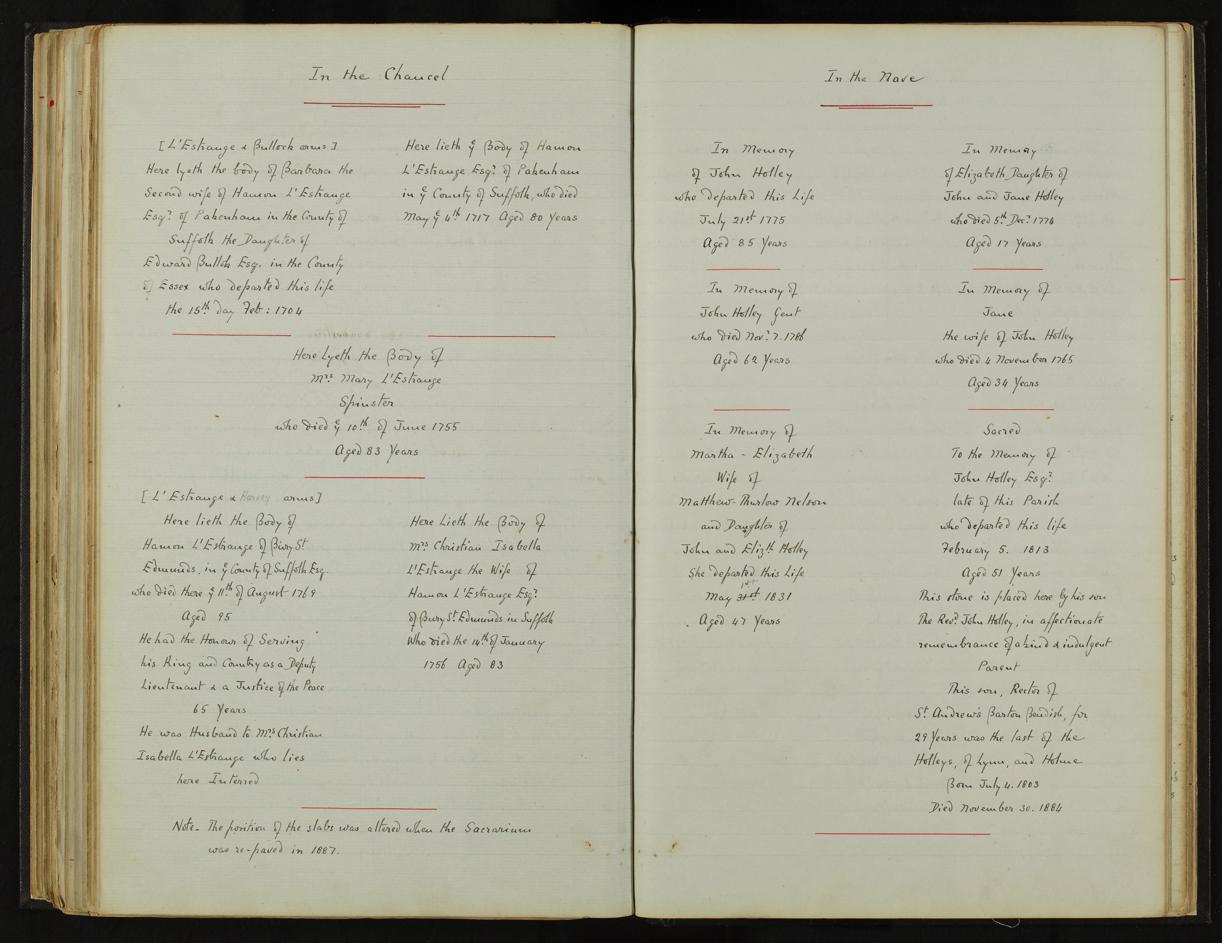 In the Chancel
[L'Estrange & Bullock arms]
Here lyeth the body of Barbara the
Second wife of Hamon L'Estrange
Esqr. of Pakenham in the County of
Suffolk the Daughter of
Edward Bullok Esq. in the County
of Essex who departed this life
the 15th day Feb: 1704
Here lieth ye Body of Hamon
L'Estrange Esqr. of Pakenham
in ye County of Suffolk, who died
May ye 4th 1717 Aged 80 Years
Here Lyeth the Body of
Mrs. Mary L'Estrange
Spinster
who died ye 10th of June 1755
Aged 83 Years
[L'Estrange & Harvey arms]
Here lieth the Body of
Hamon L'Estrange of Bury St
Edmunds, in ye County of Suffolk Esq.
who died there ye 11th of August 1769
Aged 95
He had the Honour of Serving
his King and Country as a Deputy
Lieutenant & a Justice of the Peace
65 Years
He was Husband to Mrs Christian
Isabella L'Estrange who lies
here Interred
Here Lieth the Body of
Mrs. Christian Isabella
L'Estrange the Wife of
Hamon L'Estrange Esqr.
of Bury St. Edmunds in Suffolk
Who died the 14th of January
1756 Aged 83
Note. The position of the slabs was altered when the Sacrarium
was re-paved in 1887.
In the Nave
In Memory
of John Holley
who departed this Life
July 21st 1775
Aged 85 Years
In Memory
of Elizabeth Daughter of
John and Jane Holley
who died 5th Decr. 1774
Aged 17 Years
In Memory of
John Holley Gent
who died Novr. 7. 1786
Aged 62 Years
In Memory of
Jane
the wife of John Holley
who died 4 November 1765
Aged 34 Years
In Memory of
Martha - Elizabeth
Wife of
Matthew-Thurlow Nelson
and Daughter of
John and Elizth Holley
She departed this Life
May 1st 1831
Aged 47 Years
Sacred
To the Memory of
John Holley Esqr.
late of this Parish
who departed this life
February 5. 1813
Aged 51 Years
This stone is placed here by his son
The Revd. John Holley, in affectionate
remembrance of a kind & indulgent
Parent
This son, Rector of
St. Andrew's Barton Bendish, for
29 Years was the last of the
Holleys, of Lynn, and Holme
Born July 4. 1803
Died November 30. 1884